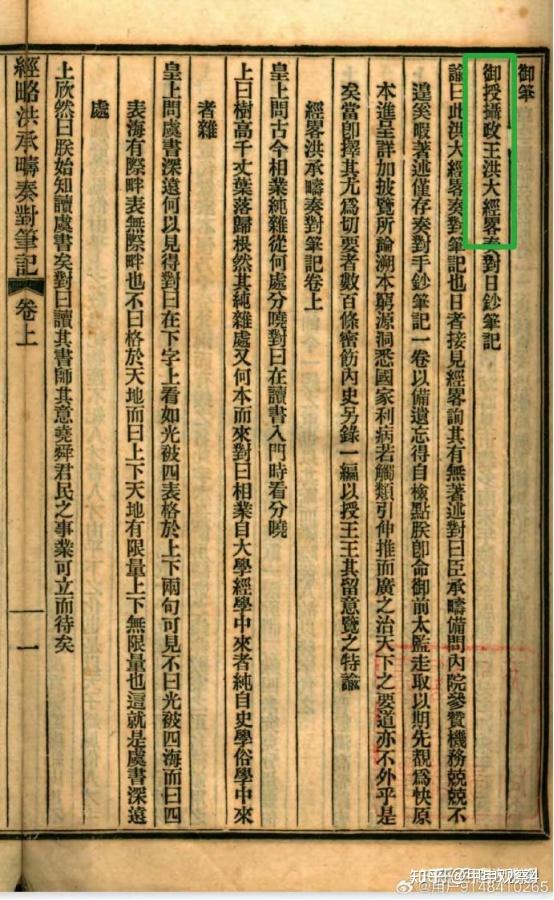 御筆
御授攝政王洪大經畧奏對日鈔筆記
諭曰此洪大經畧奏對筆記也日者接見經畧詢其有無著述對曰臣承疇備問內院參贊機務兢兢不
遑矣暇著述僅存奏對手鈔筆記一卷以備遺忘得自檢點朕卽命御前太監走取以期先覩爲快原
本進呈詳加披覽所論溯本窮源洞悉國家利病若觸類引伸推而廣之治天下之要道亦不外乎是
矣當卽擇其尤爲切要者數百條密飭內史另錄一編以授王王其留意覽之特諭
經畧洪承疇奏對筆記卷上
皇上問古今相業純雜從何處分曉對曰在讀書入門時看分曉
上曰樹高千丈葉落歸根然其純雜處又何本而來對曰相業自大學經學中來者純自史學俗學中來
者雜
皇上問虞書深遠何以見得對曰在下字上看如光被四表格於上下兩句可見不曰光被四海而曰四
表海有際畔表無際畔也不曰格於天地而曰上下天地有限量上下無限量也這就是虞書深遠
處
上欣然曰朕始知讀虞書矣對曰讀其書師其意堯舜君民之事業可立而待矣
經略洪承疇奏對筆記
卷上
一
知乎
@用户9148410265